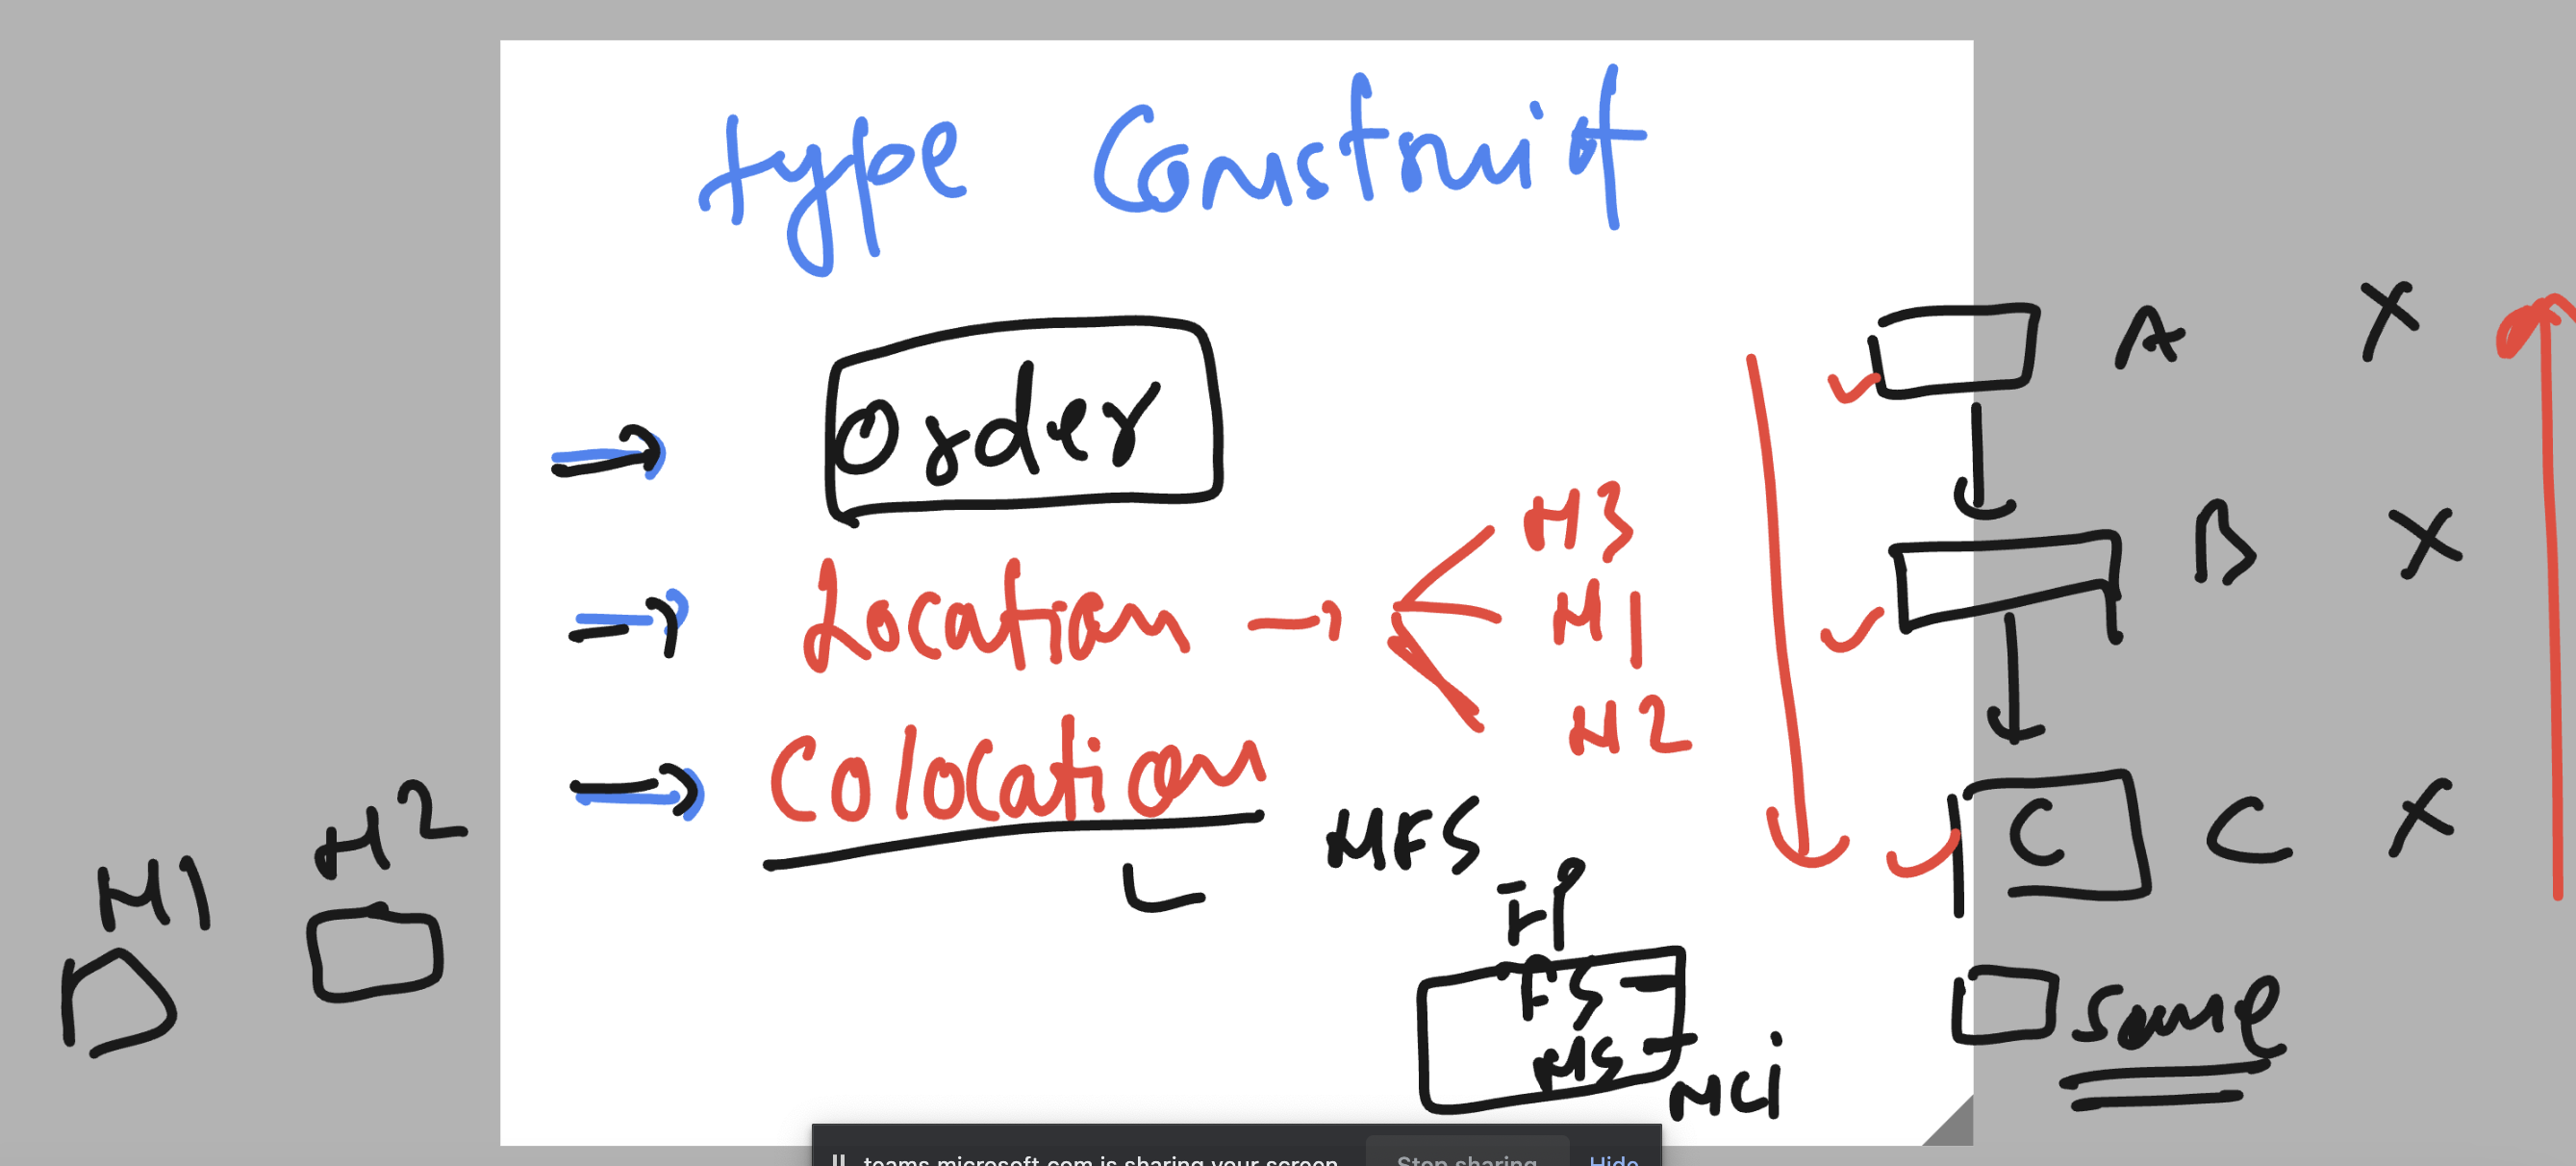 type Construit
Order
Location → H3
H1
H2
Colocation
NFS
H1
H2
IP
FS
NS
NCi
A X
B X
C C X
Same
teams.microsoft.com is sharing your screen. Stop sharing Hide